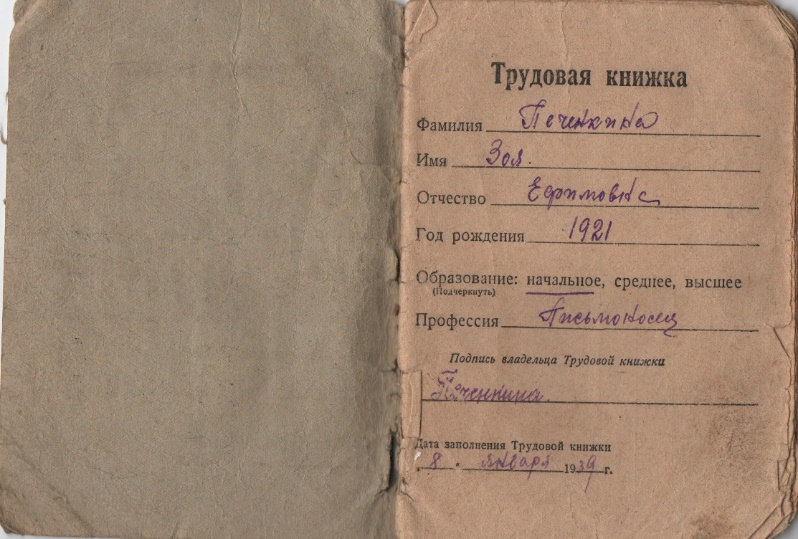 Трудовая книжка
Фамилия Печенкина
Имя Зоя.
Отчество Ефимовна
Год рождения 1921
Образование: начальное, среднее, высшее
(Подчеркнуть)
Профессия Письмоносец
Подпись владельца Трудовой книжки
Печенкина.
Дата заполнения Трудовой книжки
8. января 1939 г.